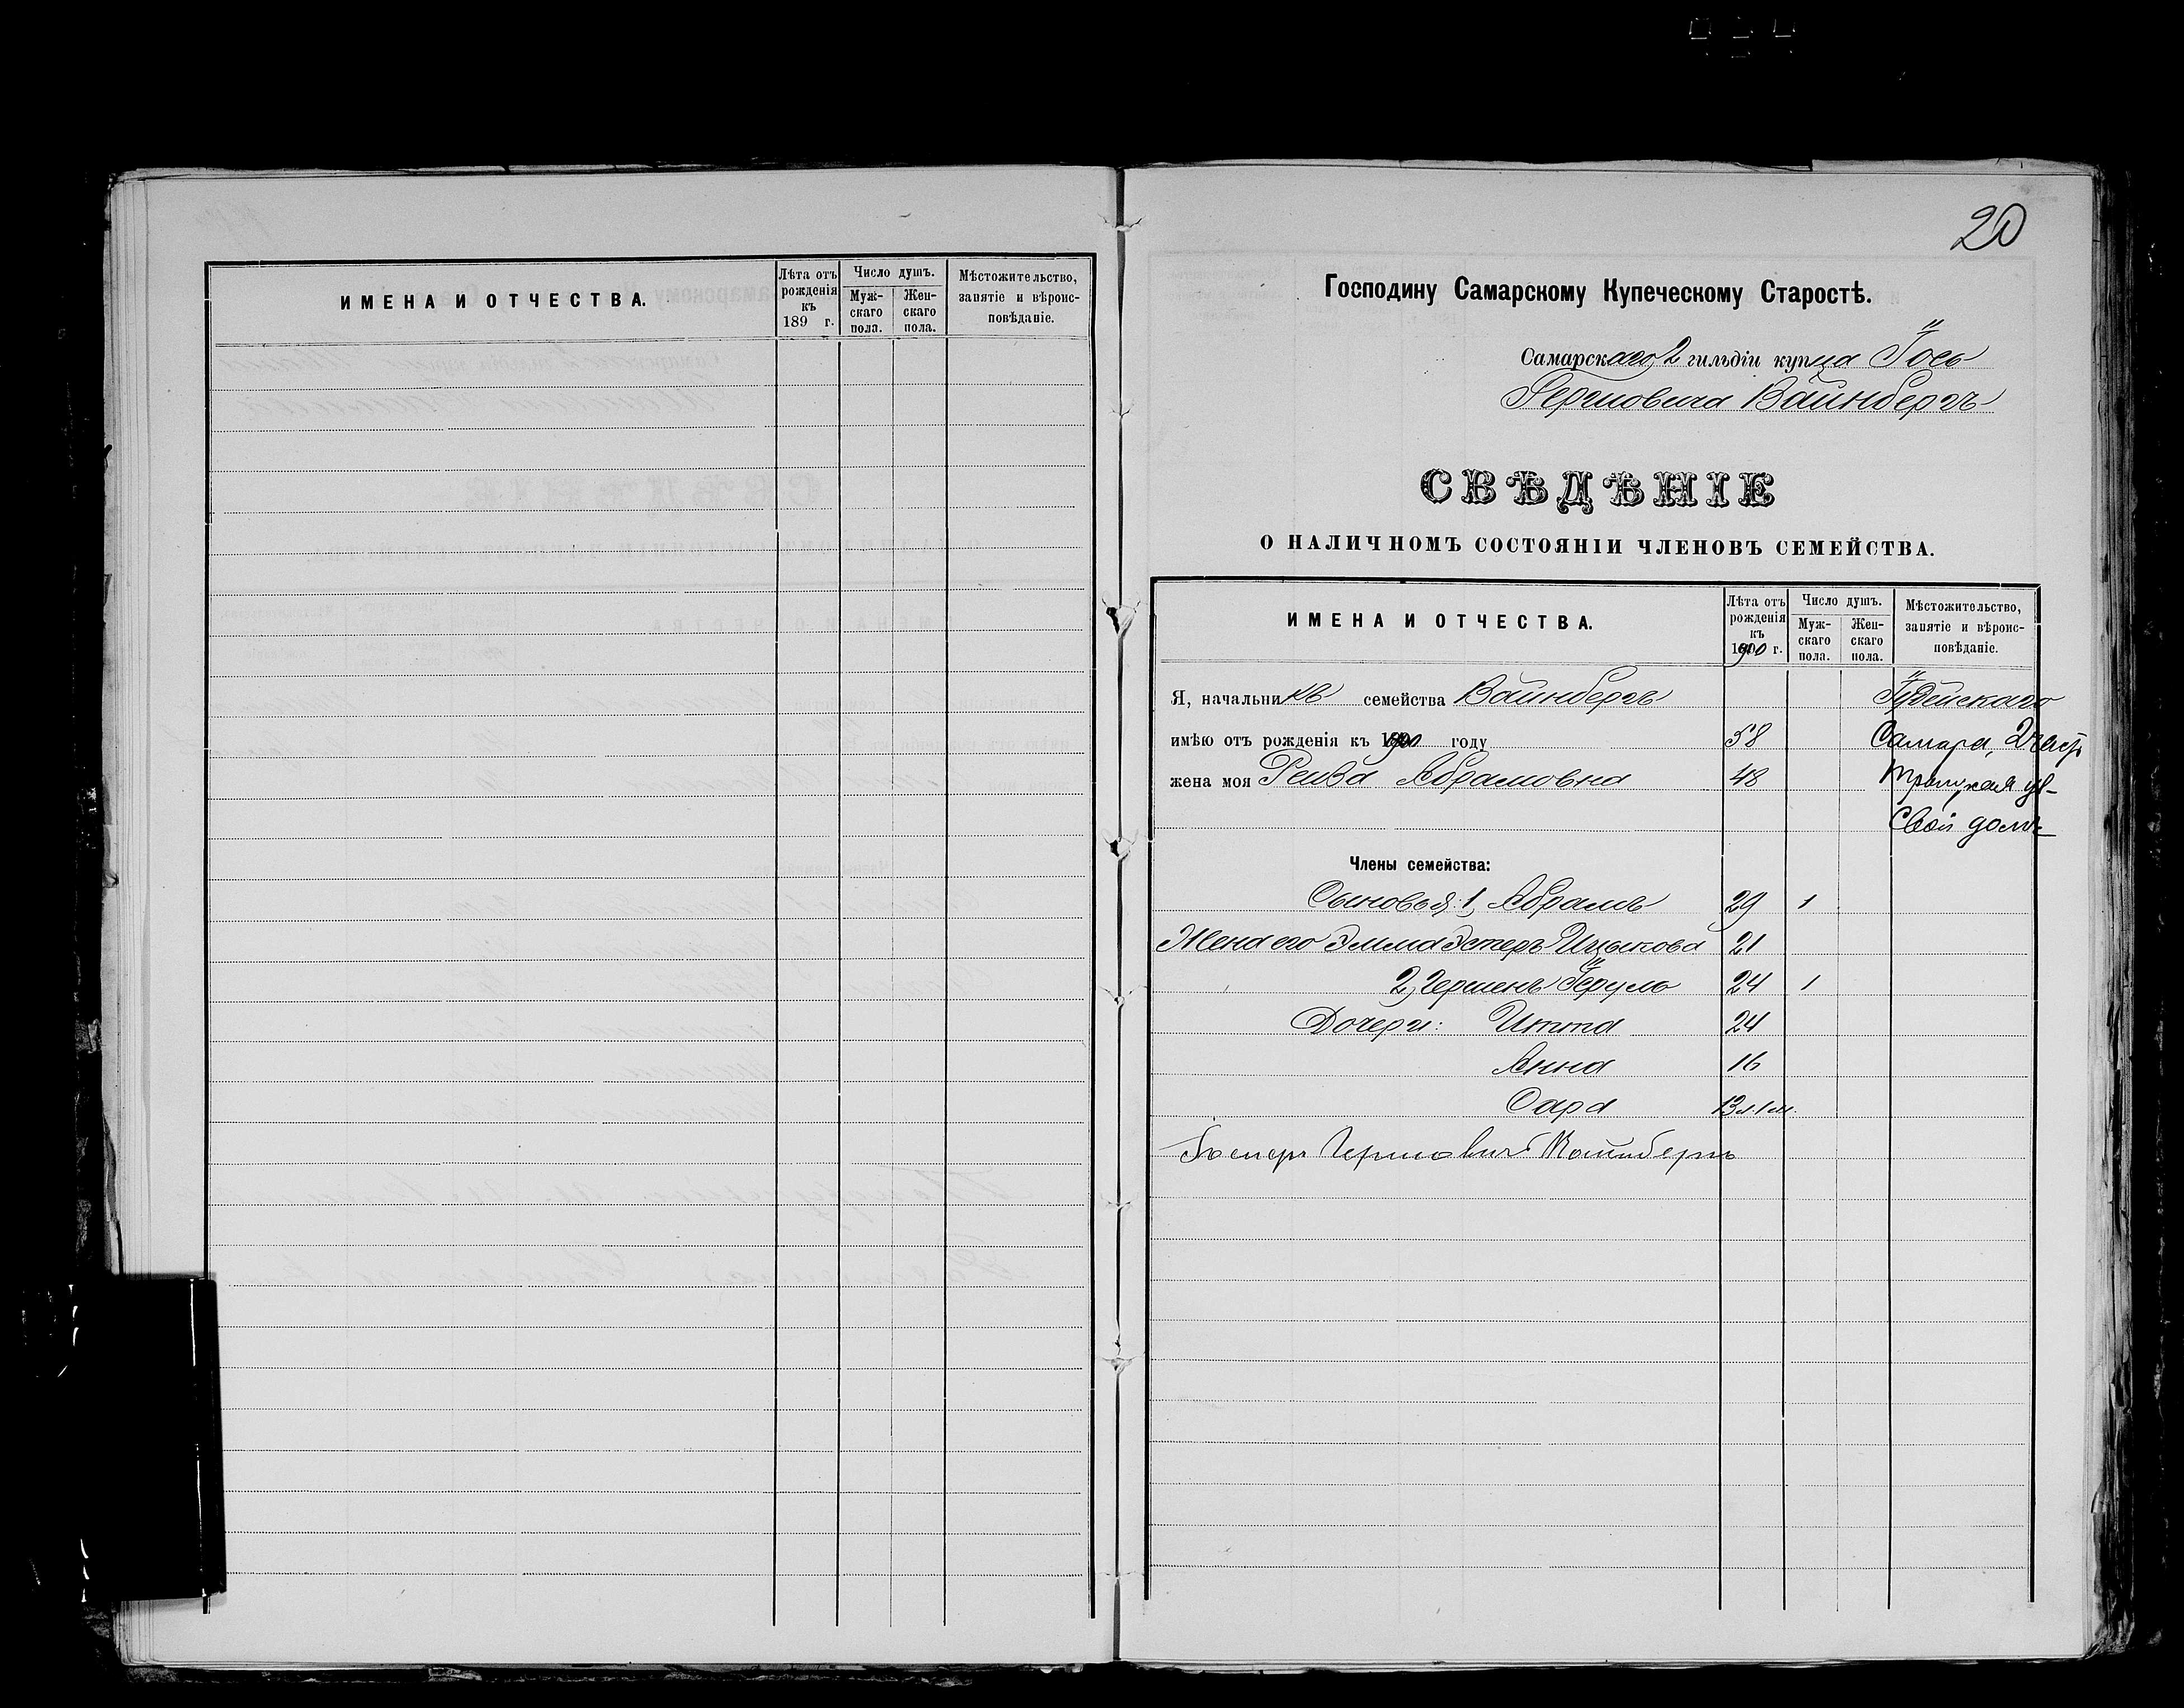 ИМЕНА И ОТЧЕСТВА.
Лѣта отъ рожденія къ 189 г.
Число душъ.
Муж-скаго пола.
Жен-скаго пола.
Мѣстожительство, занятіе и вѣроис-повѣданіе.
20
Господину Самарскому Купеческому Старостѣ.
Самарскаго 2 гильдіи купца Іось
Гершовича Вайнбергъ
СВѢДѢНІЕ
О НАЛИЧНОМЪ СОСТОЯНІИ ЧЛЕНОВЪ СЕМЕЙСТВА.
ИМЕНА И ОТЧЕСТВА.
Лѣта отъ рожденія къ 1900 г.
Число душъ.
Муж-скаго пола.
Жен-скаго пола.
Мѣстожительство, занятіе и вѣроис-повѣданіе.
Я, начальникъ семейства Вайнбергъ Іудейскаго
имѣю отъ рожденія къ 1900 году 58 Самара, 2 част
жена моя Рейза Абрамовна 48 Троицкая ул-
Свой домъ
Члены семейства:
Сыновья: 1, Абрамъ 29 1
Жена его Эмма Эстеръ Ицыкова 21
2, Гершенъ 24 1
Дочери: Итта 24
Анна 16
Сара 13 л. 1 м.
Гершовичъ Вайнбергъ